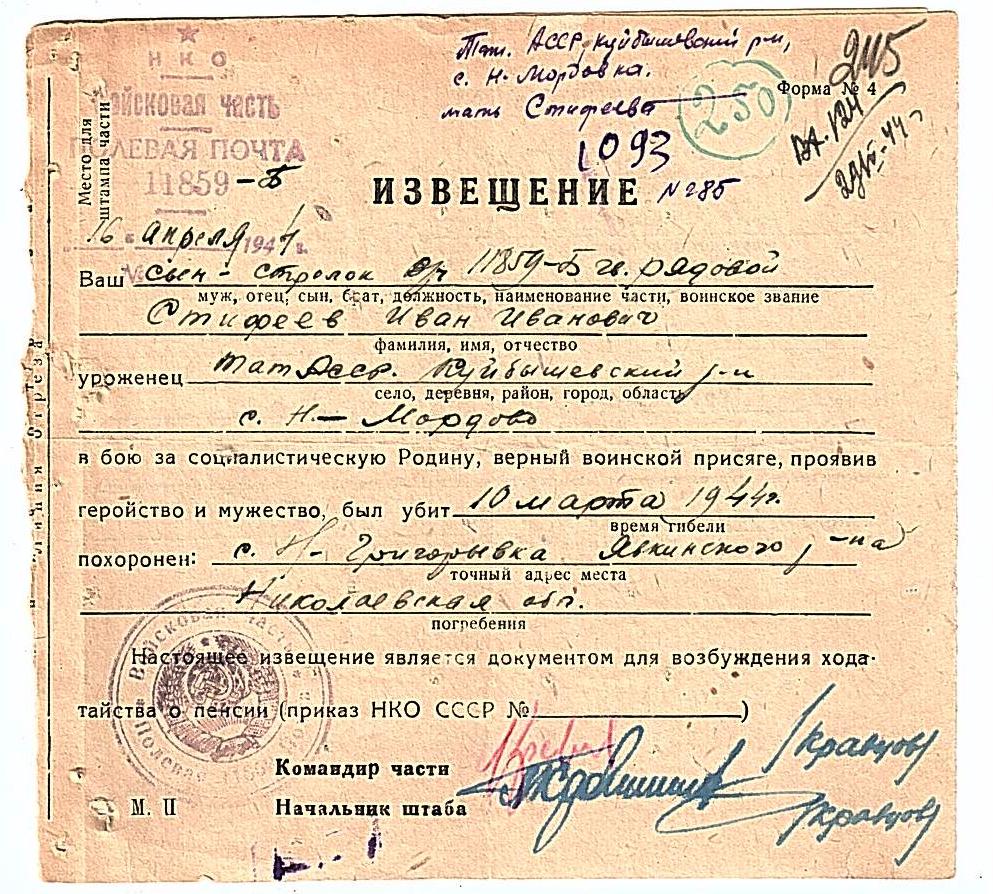 НКО
Войсковая часть
ПОЛЕВАЯ ПОЧТА
11859-Б
Место для
штампа части
Тат. АССР, Куйбышевский р-н,
с. Н-Мордовка.
мать Стифеева
1093
250
Форма № 4
2115
ИЗВЕЩЕНИЕ №285
16 апреля 1944 г.
Ваш сын - стрелок 11859-Б гв. рядовой
муж, отец, сын, брат, должность, наименование части, воинское звание
Стифеев Иван Иванович
фамилия, имя, отчество
уроженец Тат АССР. Куйбышевский р-н
село, деревня, район, город, область
с. Н-Мордово
в бою за социалистическую Родину, верный воинской присяге, проявив
геройство и мужество, был убит 10 марта 1944г.
время гибели
похоронен: с. Н-Григорьвка Явкинского р-на
точный адрес места
Николаевская обл.
погребения
Настоящее извещение является документом для возбуждения хода-
тайства о пенсии (приказ НКО СССР № )
Командир части /Кравцов/
М. П Начальник штаба /Кравцов/
линия отреза
Войсковая часть
Полевая